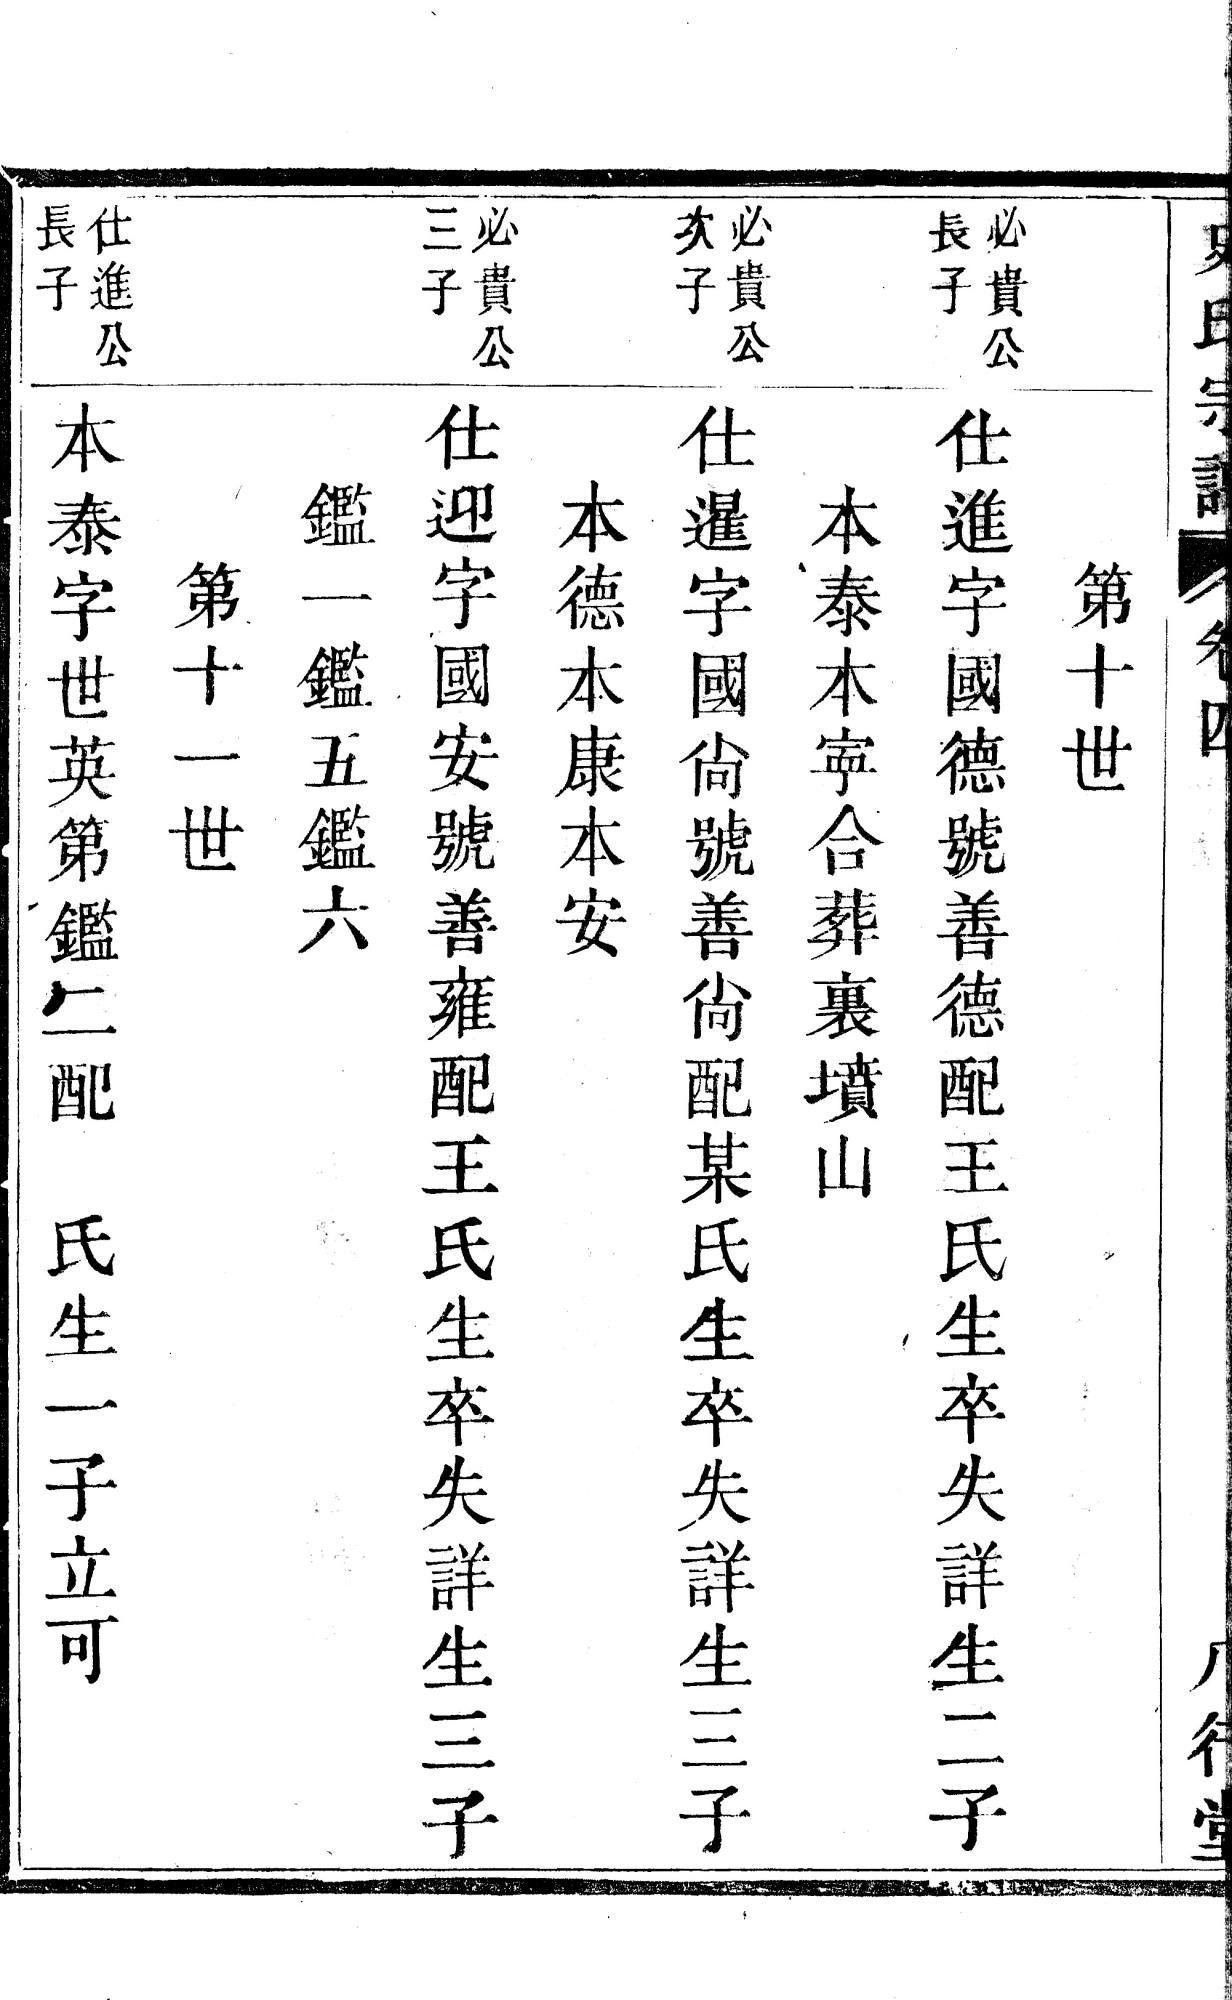 史氏宗譜 卷四 八行堂
第十世
必貴公長子
仕進字國德號善德配王氏生卒失詳生二子
本泰本寍合葬裏墳山
必貴公次子
仕暹字國尙號善尙配某氏生卒失詳生三子
本德本康本安
必貴公三子
仕迎字國安號善雍配王氏生卒失詳生三子
鑑一鑑五鑑六
第十一世
仕進公長子
本泰字世英第鑑二配 氏生一子立可